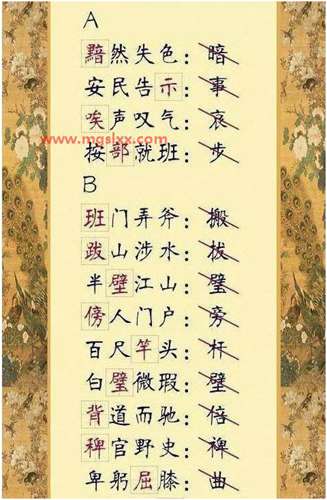 A
黯然失色：暗
安民告示：事
唉声叹气：哀
www.mgslxx.com
按部就班：步
B
班门弄斧：搬
跋山涉水：拔
半壁江山：璧
傍人门户：旁
百尺竿头：杆
白璧微瑕：壁
背道而驰：倍
稗官野史：裨
卑躬屈膝：曲